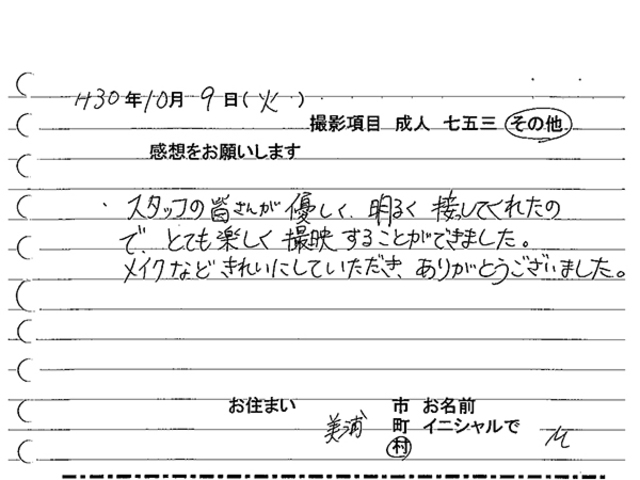 H30年10月9日(火)
撮影項目 成人 七五三 その他
感想をお願いします
・スタッフの皆さんが優しく、明るく接してくれたの
で、とても楽しく撮映することができました。
メイクなどきれいにしていただき、ありがとうございました。
お住まい 美浦 市 お名前
町 イニシャルで M
村